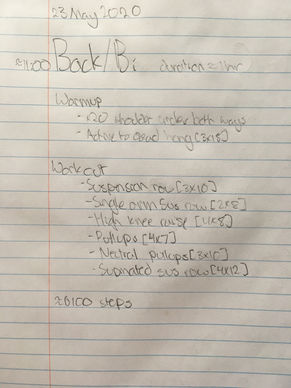 23 May 2020
≈1100 Back/Bi duration = 1hr
Warmup
- x20 shoulder circles both ways
- Active to dead hang [3x15]
Workout
- Suspension row [3x10]
- Single arm sus row [2x8]
- High knee raise [4x8]
- Pullups [4x7]
- Neutral pullups [3x10]
- Supinated sus row [4x12]
≈6100 steps